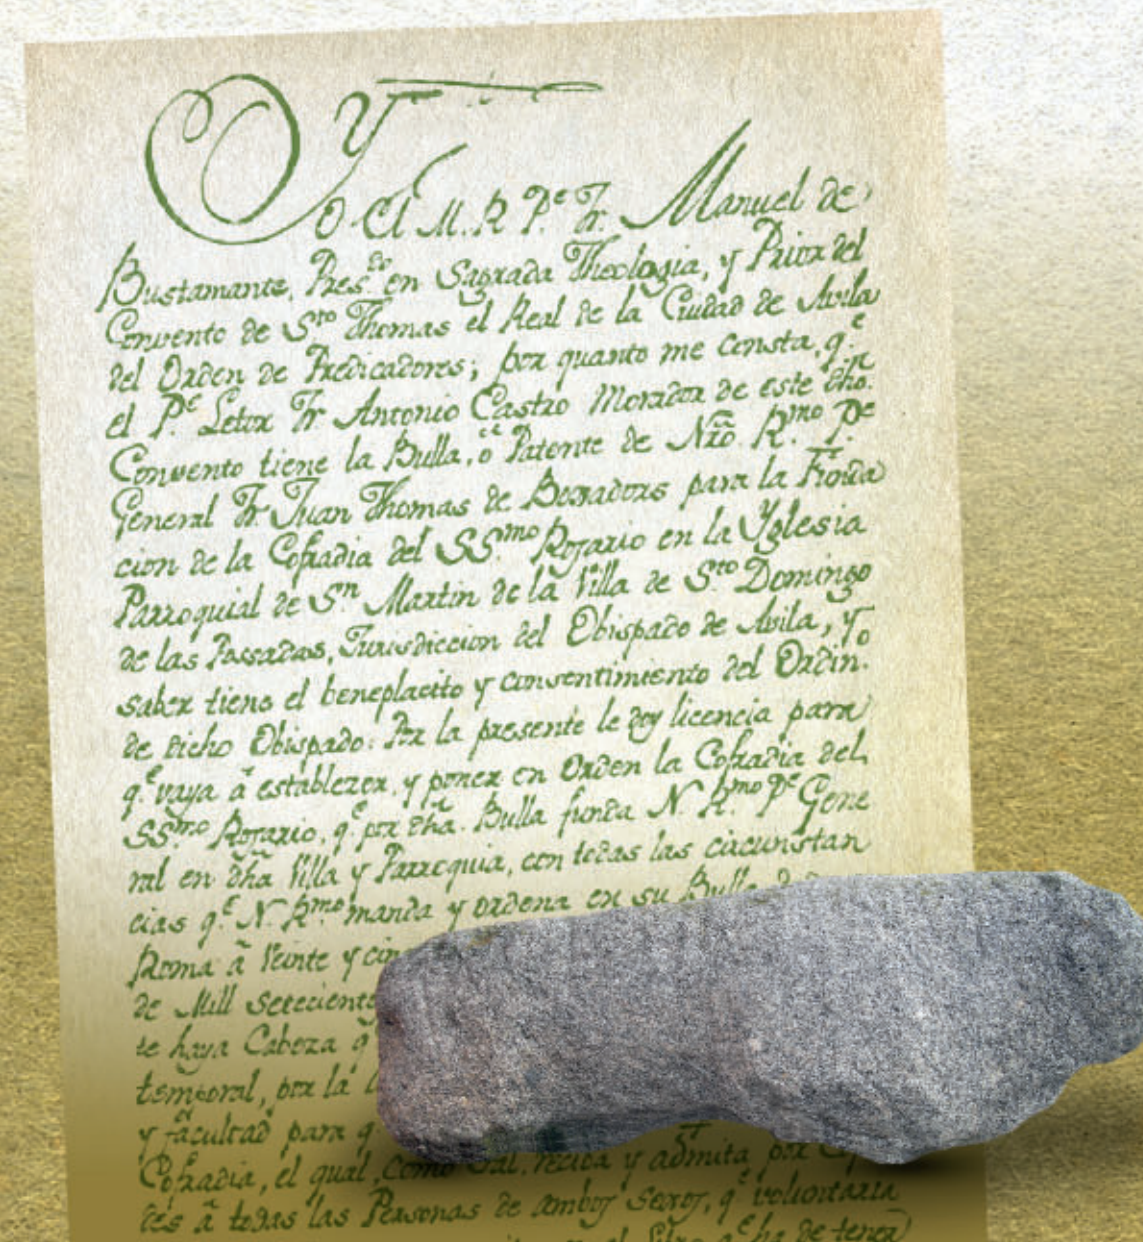 Yo el M. R. Pe. Fr. Manuel de
Bustamante, Presdo. en Sagrada Theologia, y Prior del
Convento de Sto Thomas el Real de la Ciudad de Avila
del Orden de Predicadores; por quanto me consta, q.e
el P.e Letor Fr Antonio Castro Morador de este dho.
Convento tiene la Bulla, ó Patente de Nrō. R.mo P.e
General Fr. Juan Thomas de Boxadors para la Funda
cion de la Cofradia del SS.mo Rosario en la Yglesia
Parroquial de S.n Martin de la Villa de S.to Domingo
de las Possadas, Jurisdiccion del Obispado de Avila, y
saber tiene el beneplacito y consentimiento del Ordin.o
de dicho Obispado: Por la presente le doy licencia para
q.e vaya â establezer, y poner en Orden la Cofradia del
SS.mo Rosario, q.e por dha. Bulla funda N. R.mo P.e Gene
ral en dha Villa y Parroquia, con todas las circunstan
cias q.e N. R.mo manda y ordena en su Bulla
Roma â Veinte y cin
de Mill setecientos
te haya Cabeza q
temporal, por la
y facultad para q
Cofradia, el qual, como tal, reciba y admita por
des â todas las Personas de ambos sexos, q.e voluntaria
el Libro q.e ha de tener